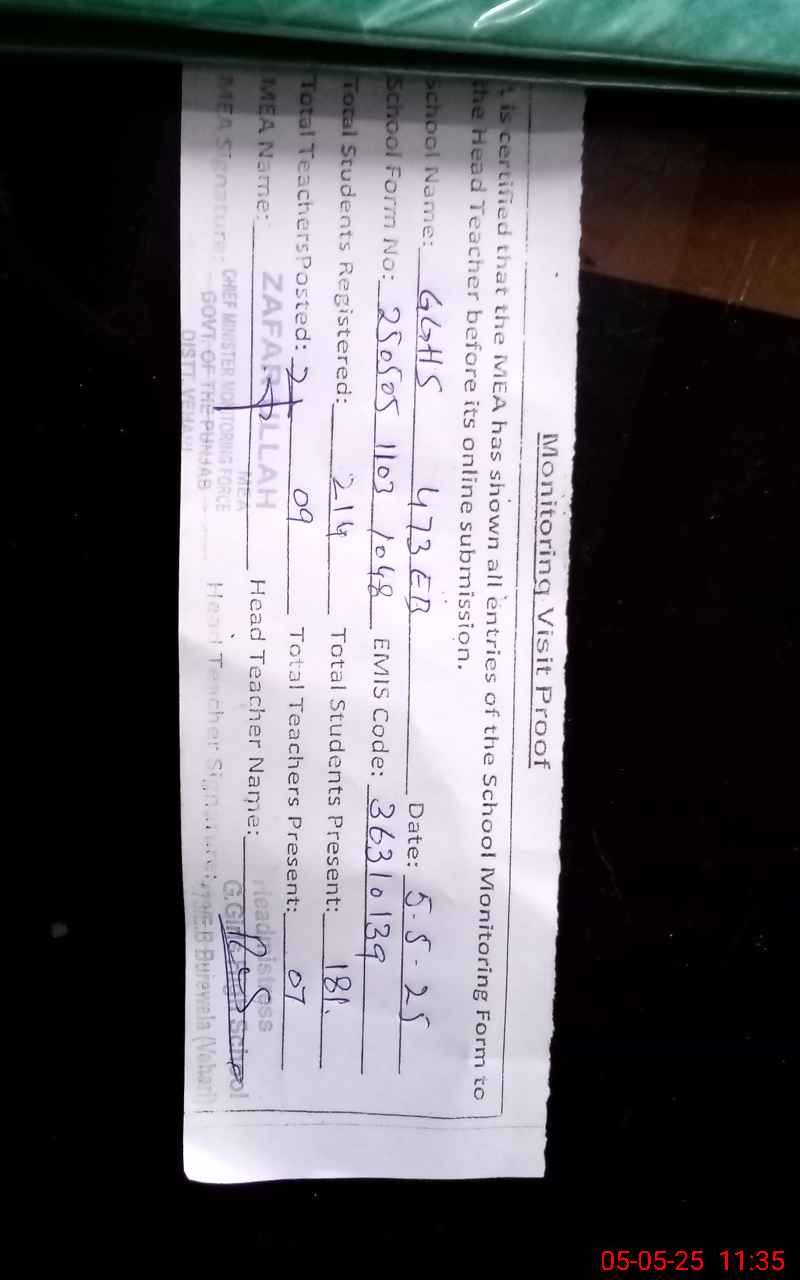 Monitoring Visit Proof
t is certified that the MEA has shown all entries of the School Monitoring Form to
the Head Teacher before its online submission.
School Name: GGHS 473 EB Date: 5-5-25
School Form No: 250505 1103 1048 EMIS Code: 36310139
Total Students Registered: 214 Total Students Present: 181
Total TeachersPosted: 09 Total Teachers Present: 07
MEA Name: ZAFAR ULLAH Head Teacher Name: Headmistress
MEA
MEA Signature: CHIEF MINISTER MONITORING FORCE Head Teacher Signature: G.Girls High School
GOVT. OF THE PUNJAB 473/E.B Burewala (Vehari)
DISTT. VEHARI
05-05-25 11:35